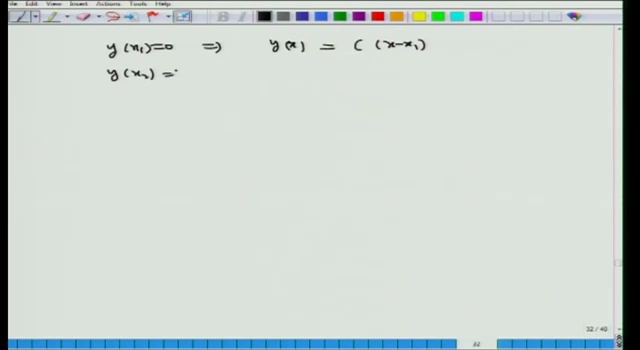 File Edit View Insert Actions Tools Help
y(x₁)=0 ⇒ y(x) = C (x-x₁)
y(x₂) =
32 / 40
32